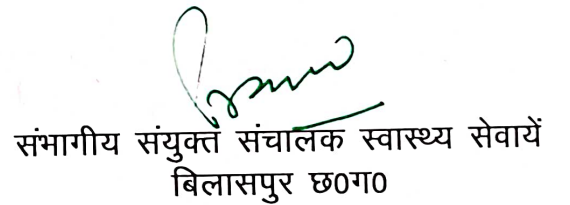 संभागीय संयुक्त संचालक स्वास्थ्य सेवायें
बिलासपुर छ0ग0